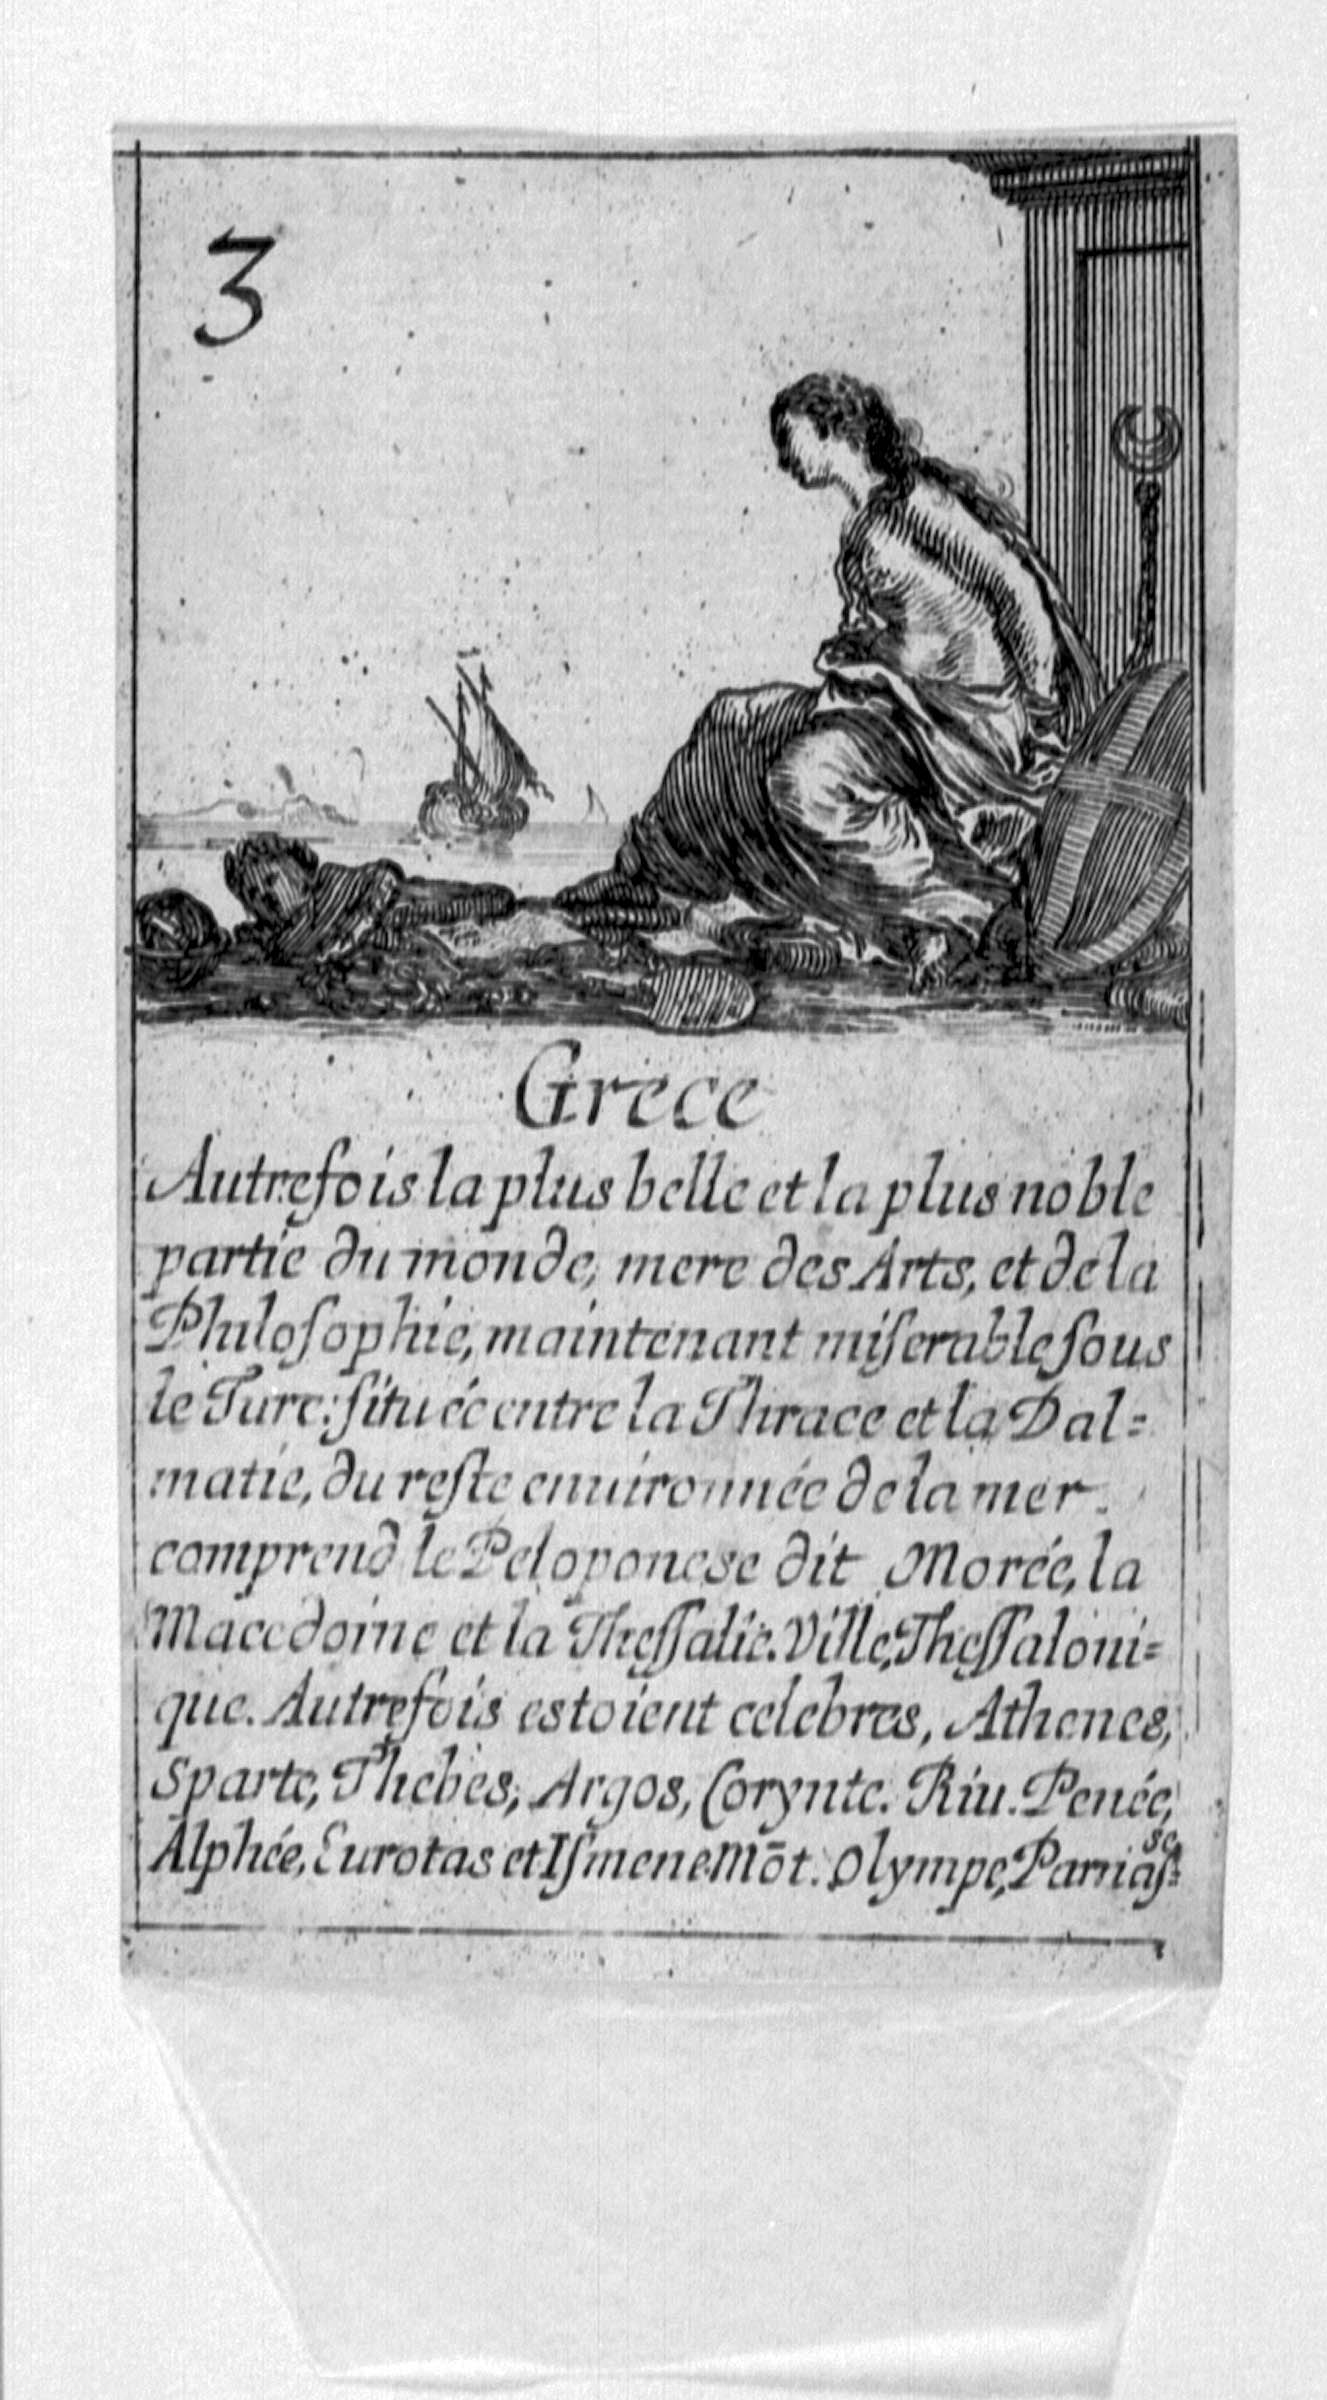 3
Grece
Autrefois la plus belle et la plus noble
partie du monde, mere des Arts, et de la
Philoſophie, maintenant miſerable ſous
le Turc: ſituée entre la Thrace et la Dal=
matie, du reſte enuironnée de la mer.
comprend le Peloponese dit Morée, la
Macedoine et la Theſſalie. Ville, Theſſaloni=
que. Autrefois estoient celebres, Athenes,
Sparte, Thebes, Argos, Corynte. Riu. Penée,
Alphée, Eurotas et Iſmene Mōt. Olympe, Parnaſ=
se